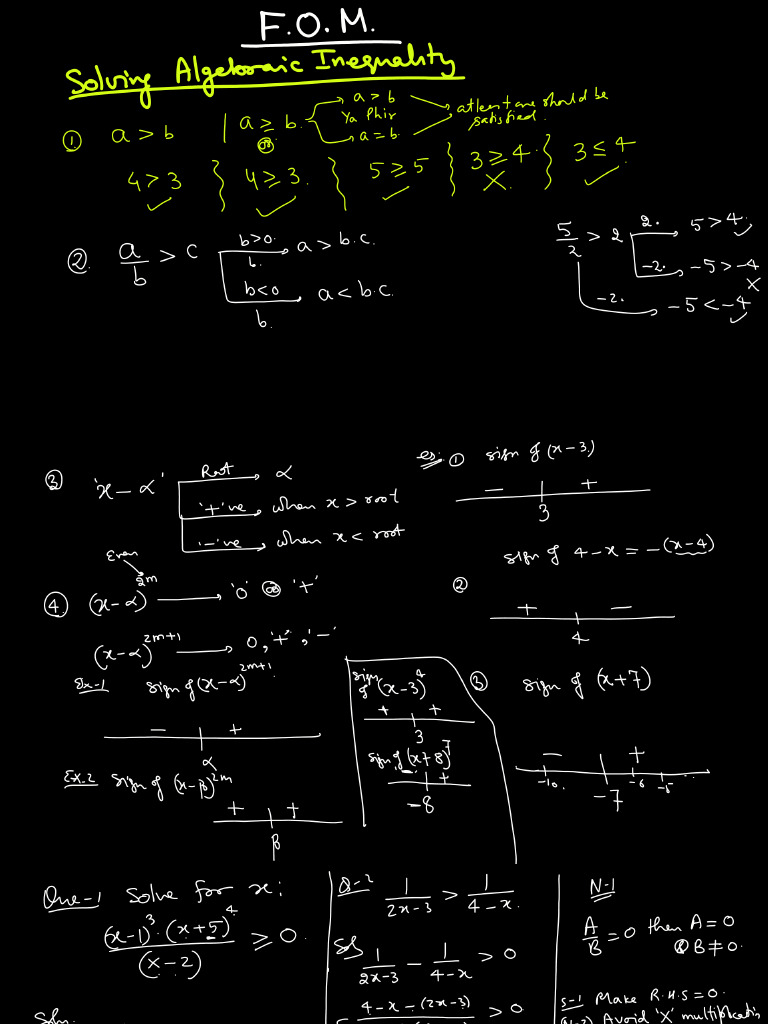 F.O.M.
Solving Algebraic Inequality
① a > b | a ≥ b. → a > b
Ya Phir
→ a = b.
atleast one should be satisfied.
4 > 3 ✓ } 4 ≥ 3. ✓ } 5 ≥ 5 ✓ } 3 ≥ 4. × } 3 ≤ 4 ✓
②. a/b > c
b>0. b. → a > b.c.
b<0 b. → a < b.c.
5/2 > 2
2. → 5 > 4. ✓
-2. → -5 > -4 ×
-2. → -5 < -4 ✓
③ 'x - α'
Root → α
'+'ve → when x > root
'-'ve → when x < root
eg: ① sign of (x-3)
- +
3
sign of 4-x = -(x-4)
②
+ -
4
Even
④ (x-α)^2m → '0' or '+'
(x-α)^2m+1 → 0, '+', '-'
Ex-1 sign of (x-α)^2m+1
- +
α
Ex-2 sign of (x-β)^2m
+ +
β
sign of (x-3)^4
+ +
3
sign of (x+8)^7
- +
-8
③ sign of (x+7)
- +
-10. -7 -6 -5
Que-1 Solve for x:
(x-1)^3 . (x+5)^4 / (x-2) ≥ 0.
Soln.
Q-2 1/(2x-3) > 1/(4-x).
Sol 1/(2x-3) - 1/(4-x) > 0
4-x-(2x-3) > 0
N-1
A/B = 0 then A = 0
& B ≠ 0.
S-1 Make R.H.S = 0.
Avoid 'X' multiplication